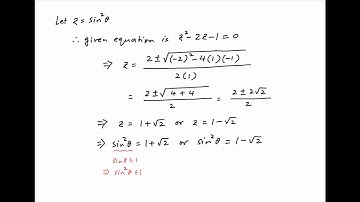 Let z = sin²θ
∴ given equation is z² - 2z - 1 = 0
⇒ z = (2 ± √((-2)² - 4(1)(-1))) / 2(1)
= (2 ± √(4 + 4)) / 2 = (2 ± 2√2) / 2
⇒ z = 1 + √2 or z = 1 - √2
⇒ sin²θ = 1 + √2 or sin²θ = 1 - √2
sinθ ≤ 1
⇒ sin²θ ≤ 1